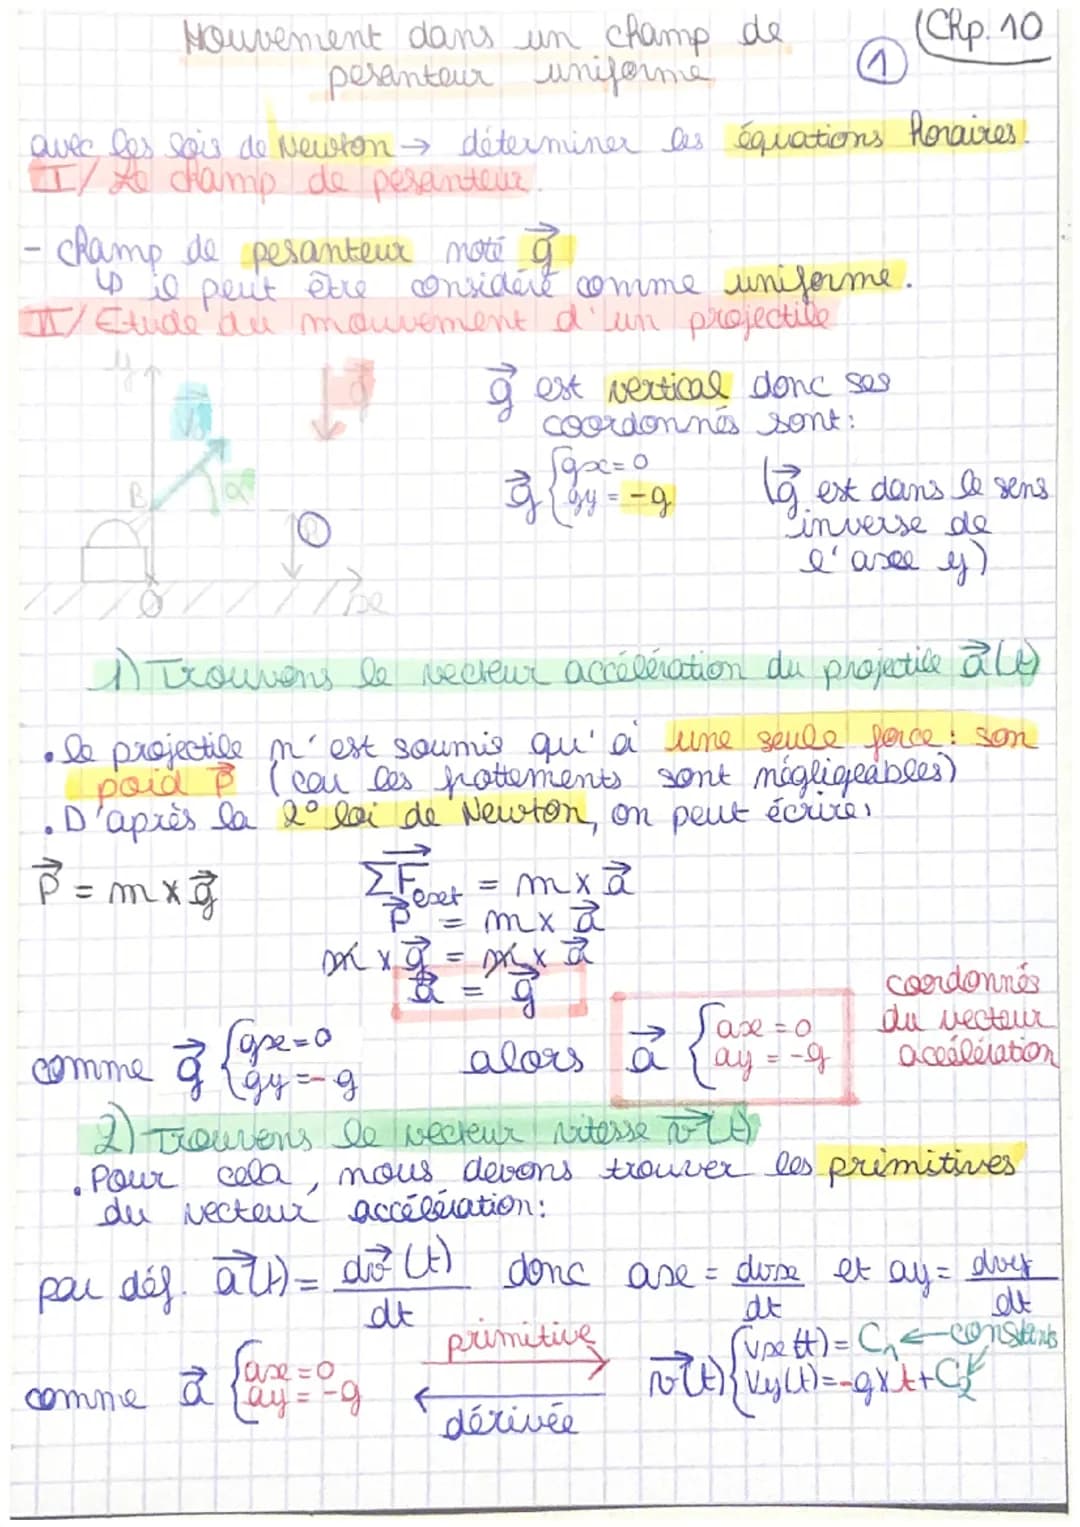 Mouvement dans un champ de
pesanteur uniforme
(Chp. 10
1
avec les lois de Newton → déterminer les équations horaires.
I/ Le champ de pesanteur.
- champ de pesanteur noté g⃗
↳ il peut être considéré comme uniforme.
II/ Etude du mouvement d'un projectile
y
V⃗₀
g⃗
B
α
h
O
x
g⃗ est vertical donc ses
coordonnés sont:
g⃗ { gx = 0
gy = -g
(g⃗ est dans le sens
inverse de
l'axe y)
1) Trouvons le vecteur accélération du projectile a⃗(t)
• le projectile n'est soumis qu'à une seule force : son
poid P⃗ (car les frottements sont négligeables)
• D'après la 2° loi de Newton, on peut écrire:
P⃗ = m x g⃗
ΣF⃗ext = m x a⃗
P⃗ = m x a⃗
m x g⃗ = m x a⃗
a⃗ = g⃗
comme g⃗ { gx = 0
gy = -g
alors a⃗ { ax = 0
ay = -g
coordonnés
du vecteur
accélération
2) Trouvons le vecteur vitesse v⃗(t)
• Pour cela, nous devons trouver les primitives
du vecteur accélération:
par déf. a⃗(t) = dv⃗(t)/dt donc ax = dvx/dt et ay = dvy/dt
comme a⃗ { ax = 0
ay = -g
primitive
dérivée
v⃗(t) { vx(t) = C₁ ← constants
vy(t) = -g x t + C₂